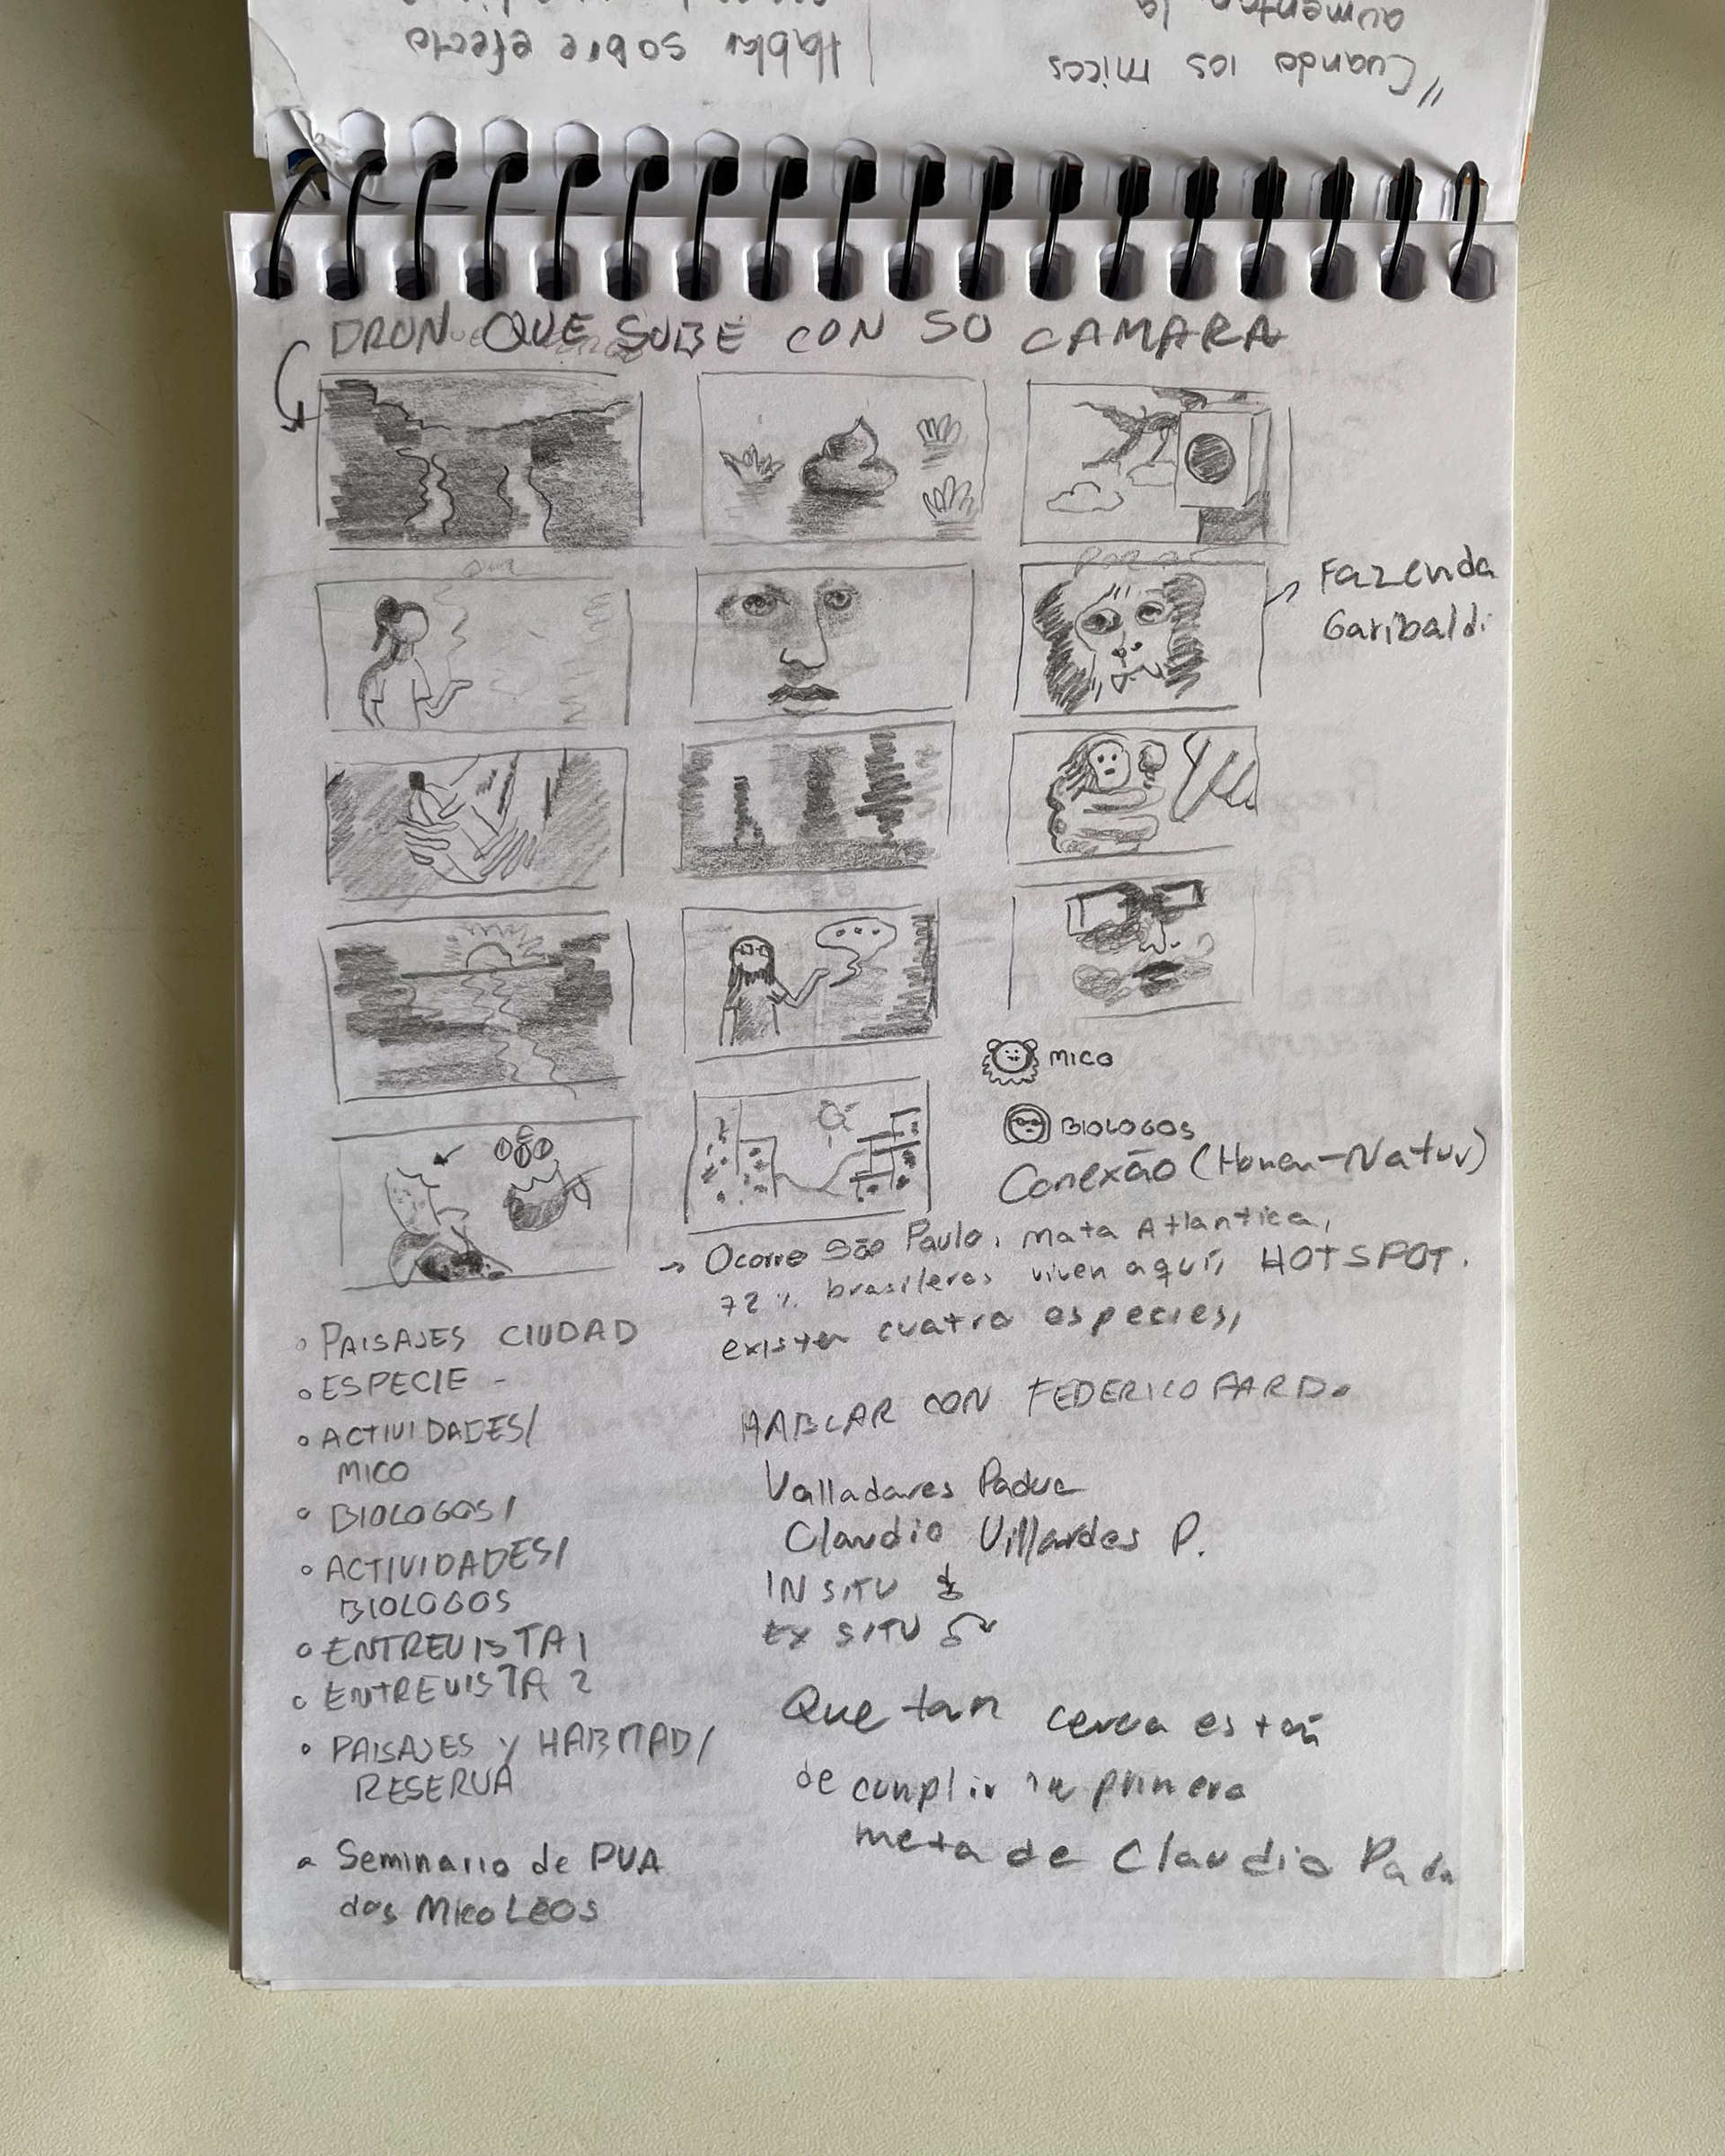 "Cuando los micos
aumentan la
Hablar sobre efecto
DRON QUE SUBE CON SU CAMARA
Fazenda
Garibaldi
MICO
BIOLOGOS
Conexão (Homen-Natur)
→ Ocorre São Paulo, mata Atlantica,
72% brasileros viven aquí, HOTSPOT.
existen cuatro especies,
HABLAR CON FEDERICO PARDO
Valladares Padua
Claudio Villardes P.
IN SITU
EX SITU
Que tan cerca están
de cumplir la primera
meta de Claudio Padu
PAISAJES CIUDAD
ESPECIE -
ACTIVIDADES/
MICO
BIOLOGOS/
ACTIVIDADES/
BIOLOGOS
ENTREVISTA 1
ENTREVISTA 2
PAISAJES Y HABITAD/
RESERVA
Seminario de PVA
dos Mico Leos